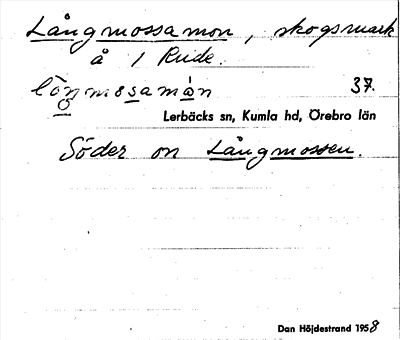 Långmossamon, skogsmark
å 1 Rude.
lòŋmosamàn 37.
Lerbäcks sn, Kumla hd, Örebro län
Söder om Långmossen.
Dan Höjdestrand 1958